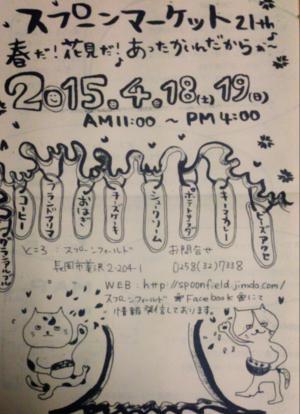 スプーンマーケット21th
春だ!花見だ!あったかいんだからぁ~♪
2015.4.18(土)19(日)
AM11:00 ~ PM4:00
ビーズアクセ
キーマカレー
ポテトサラダ
シュークリーム
チーズケーキ
おはぎ
ブランドフリマ
コーヒー
ところ:スプーンフィールド
長岡市蓮潟2-204-1
お問合せ
0258(32)7338
WEB:http://spoonfield.jimdo.com/
スプーンフィールド Facebookにて
情報発信しております。